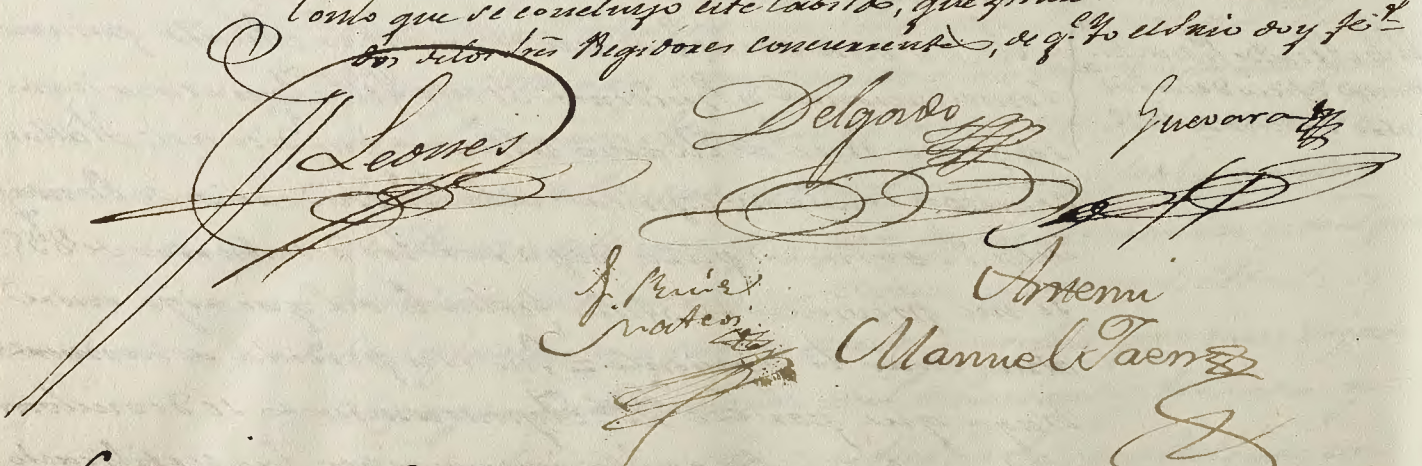 Con lo que se concluyo este Cabildo, que
dos delos Sres Regidores concurrentes, de q.e Yo el Srio doy fe
Leones
Delgado
Guevara
J. Ruiz
Mateos
Antemi
Manuel Jaen